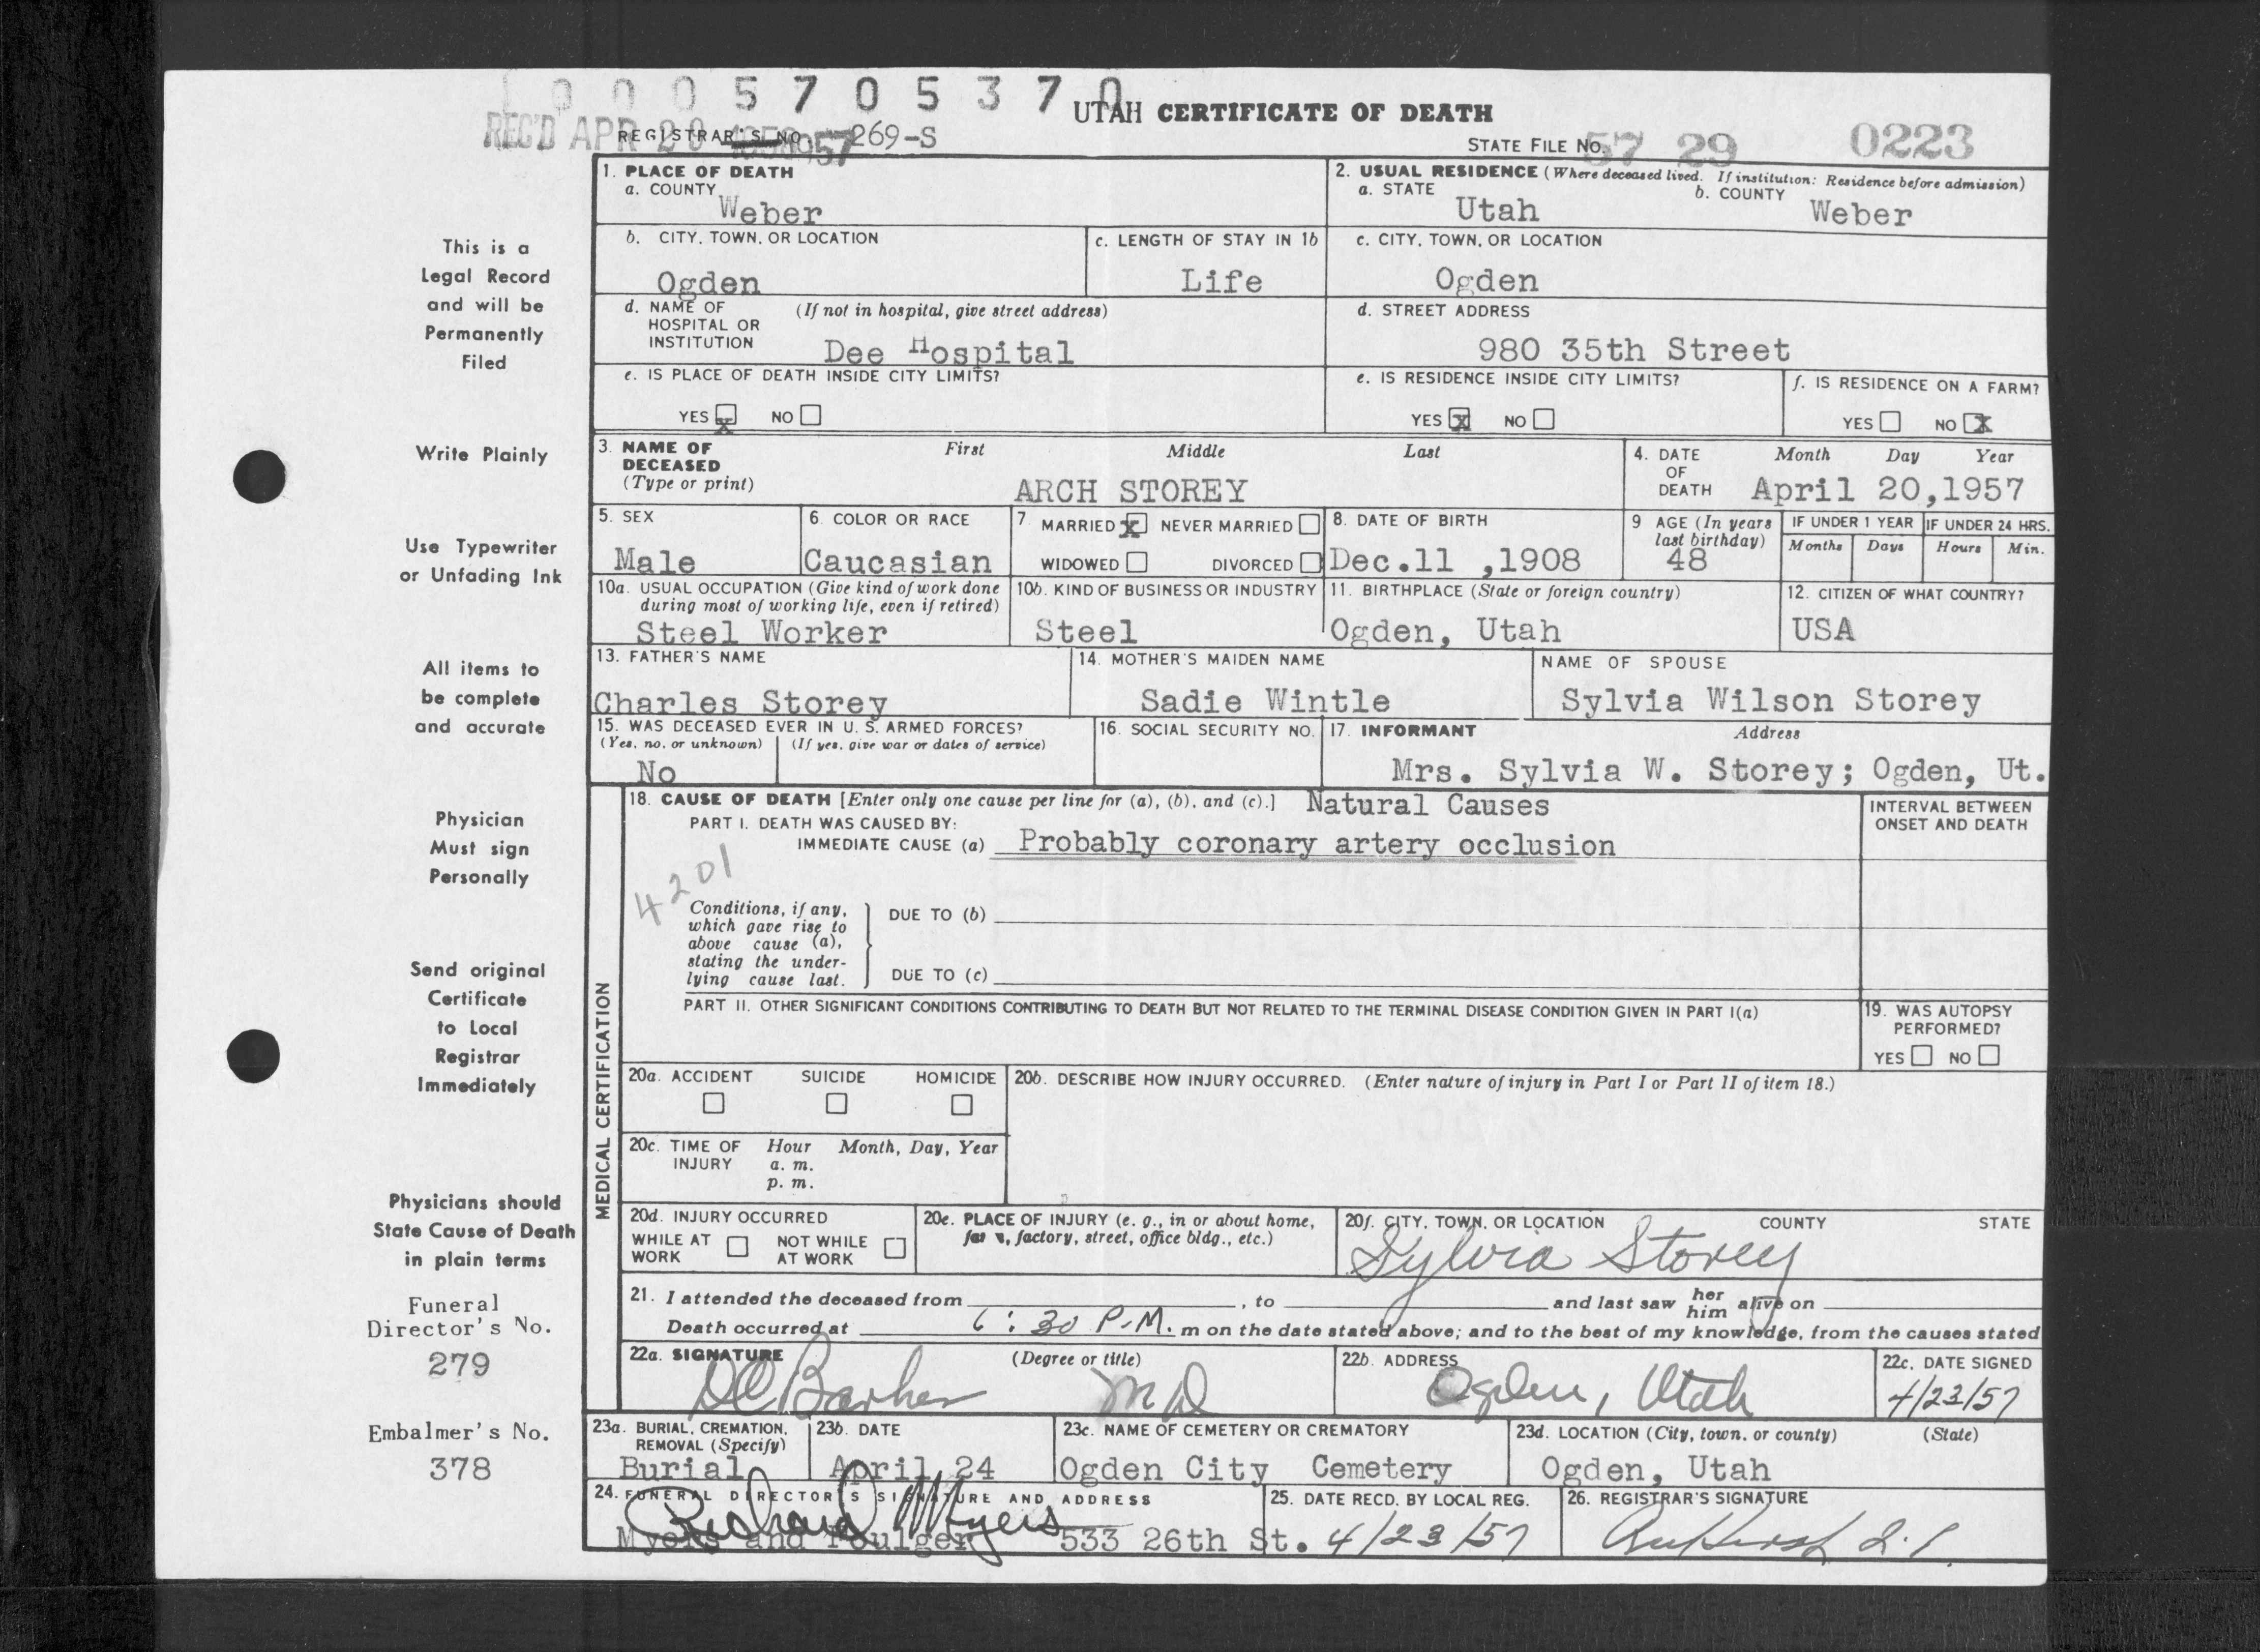 1 0 0 0 5 7 0 5 3 7 0
UTAH CERTIFICATE OF DEATH
REC'D APR 1957
REGISTRAR'S NO 269-S
STATE FILE NO. 57 29 0223
This is a
Legal Record
and will be
Permanently
Filed
Write Plainly
Use Typewriter
or Unfading Ink
All items to
be complete
and accurate
Physician
Must sign
Personally
Send original
Certificate
to Local
Registrar
Immediately
Physicians should
State Cause of Death
in plain terms
Funeral
Director's No.
279
Embalmer's No.
378
1. PLACE OF DEATH
a. COUNTY
Weber
2. USUAL RESIDENCE (Where deceased lived. If institution: Residence before admission)
a. STATE
Utah
b. COUNTY
Weber
b. CITY, TOWN, OR LOCATION
Ogden
c. LENGTH OF STAY IN 1b
Life
c. CITY, TOWN, OR LOCATION
Ogden
d. NAME OF (If not in hospital, give street address)
HOSPITAL OR
INSTITUTION
Dee Hospital
d. STREET ADDRESS
980 35th Street
e. IS PLACE OF DEATH INSIDE CITY LIMITS?
YES X NO
e. IS RESIDENCE INSIDE CITY LIMITS?
YES X NO
f. IS RESIDENCE ON A FARM?
YES NO X
3. NAME OF First Middle Last
DECEASED
(Type or print)
ARCH STOREY
4. DATE Month Day Year
OF
DEATH April 20,1957
5. SEX
Male
6. COLOR OR RACE
Caucasian
7 MARRIED X NEVER MARRIED
WIDOWED DIVORCED
8. DATE OF BIRTH
Dec.11 ,1908
9 AGE (In years
last birthday)
48
IF UNDER 1 YEAR IF UNDER 24 HRS.
Months Days Hours Min.
10a. USUAL OCCUPATION (Give kind of work done
during most of working life, even if retired)
Steel Worker
10b. KIND OF BUSINESS OR INDUSTRY
Steel
11. BIRTHPLACE (State or foreign country)
Ogden, Utah
12. CITIZEN OF WHAT COUNTRY?
USA
13. FATHER'S NAME
Charles Storey
14. MOTHER'S MAIDEN NAME
Sadie Wintle
NAME OF SPOUSE
Sylvia Wilson Storey
15. WAS DECEASED EVER IN U. S. ARMED FORCES?
(Yes, no, or unknown) (If yes, give war or dates of service)
No
16. SOCIAL SECURITY NO.
17. INFORMANT Address
Mrs. Sylvia W. Storey; Ogden, Ut.
MEDICAL CERTIFICATION
18. CAUSE OF DEATH [Enter only one cause per line for (a), (b), and (c).] Natural Causes
PART I. DEATH WAS CAUSED BY:
IMMEDIATE CAUSE (a) Probably coronary artery occlusion
INTERVAL BETWEEN
ONSET AND DEATH
4201
Conditions, if any,
which gave rise to
above cause (a),
stating the under-
lying cause last.
DUE TO (b)
DUE TO (c)
PART II. OTHER SIGNIFICANT CONDITIONS CONTRIBUTING TO DEATH BUT NOT RELATED TO THE TERMINAL DISEASE CONDITION GIVEN IN PART I(a)
19. WAS AUTOPSY
PERFORMED?
YES NO
20a. ACCIDENT SUICIDE HOMICIDE
20b. DESCRIBE HOW INJURY OCCURRED. (Enter nature of injury in Part I or Part II of item 18.)
20c. TIME OF Hour Month, Day, Year
INJURY a. m.
p. m.
20d. INJURY OCCURRED
WHILE AT NOT WHILE
WORK AT WORK
20e. PLACE OF INJURY (e. g., in or about home,
factory, street, office bldg., etc.)
20f. CITY, TOWN, OR LOCATION COUNTY STATE
Sylvia Storey
21. I attended the deceased from , to and last saw her him alive on
Death occurred at 6:30 P.M. m on the date stated above; and to the best of my knowledge, from the causes stated
22a. SIGNATURE (Degree or title)
Barker MD
22b. ADDRESS
Ogden, Utah
22c. DATE SIGNED
4/23/57
23a. BURIAL, CREMATION,
REMOVAL (Specify)
Burial
23b. DATE
April 24
23c. NAME OF CEMETERY OR CREMATORY
Ogden City Cemetery
23d. LOCATION (City, town, or county) (State)
Ogden, Utah
24. FUNERAL DIRECTOR'S SIGNATURE AND ADDRESS
Richard Myers
Myers and Foulger 533 26th St.
25. DATE RECD. BY LOCAL REG.
4/23/57
26. REGISTRAR'S SIGNATURE